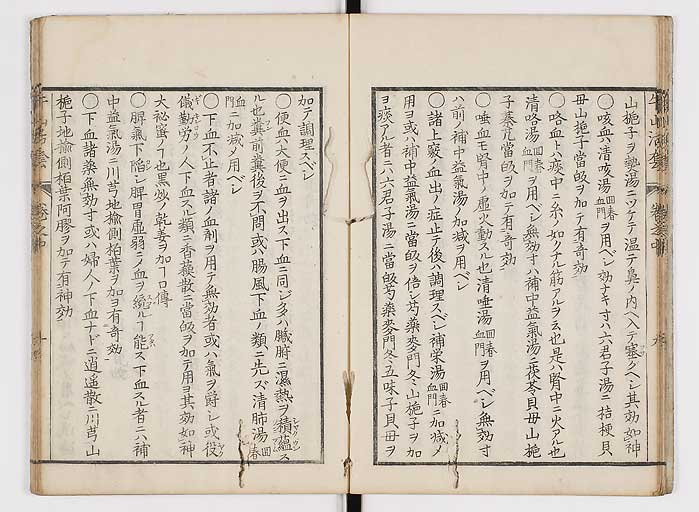 山梔子ヲ熱湯ニツケテ温テ鼻ノ内ヘ入テ塞クヘシ其効如神
○咳血ハ清咳湯回春血門ヲ用ベシ効ナキ寸ハ六君子湯ニ桔梗貝
母山梔子當皈ヲ加テ有奇効
○咯血ト云ハ痰中ニ糸ノ如クナル筋アルヲ云也是ハ腎中ニ火アル也
清咯湯回春血門ヲ用ベシ無効寸ハ補中益氣湯ニ茯苓貝母山梔
子麦門當皈ヲ加テ有奇効
○唾血モ腎中ノ虚火動スル也清唾湯回春血門ヲ用ベシ無効寸
ハ前ノ補中益氣湯ノ加減ヲ用ベシ
○諸上竅ノ血出ノ症止テ後ハ調理スベシ補栄湯回春血門ニ加減ノ
用ヨ或ハ補中益氣湯ニ當皈ヲ倍シ芍藥麥門冬山梔ヲ加
ヨ痰アル者ニハ六君子湯ニ當皈芍藥麥門冬五味子貝母ヲ
加テ調理スベシ
○便血ハ大便ニ血ヲ出ス下血ニ同シ多ハ臓腑ニ濕熱ヲ積蘊ス
ル也糞前糞後ヲ不問或ハ腸風下血ノ類ニ先ズ清肺湯回春
血門ニ加減ノ用ベシ
○下血不止者諸ノ血剤ヲ用テ無効者或ハ氣ヲ欝シ或役
儀勤労ノ人下血スル類ニ香蘓散ニ當皈ヲ加テ用ヨ其効如神
大秘蜜ノ也黒炒ノ乾姜ヲ加一口傳
○脾氣下陥シ脾胃虚弱ニノ血ヲ統ルヿ能ス下血スル者ニハ補
中益氣湯ニ川芎地揄側柏葉ヲ加ヨ有奇効
○下血諸藥無効寸或ハ婦人ノ下血ナドニ逍遥散ニ川芎山
梔子地揄側柏葉阿膠ヲ加テ有神効